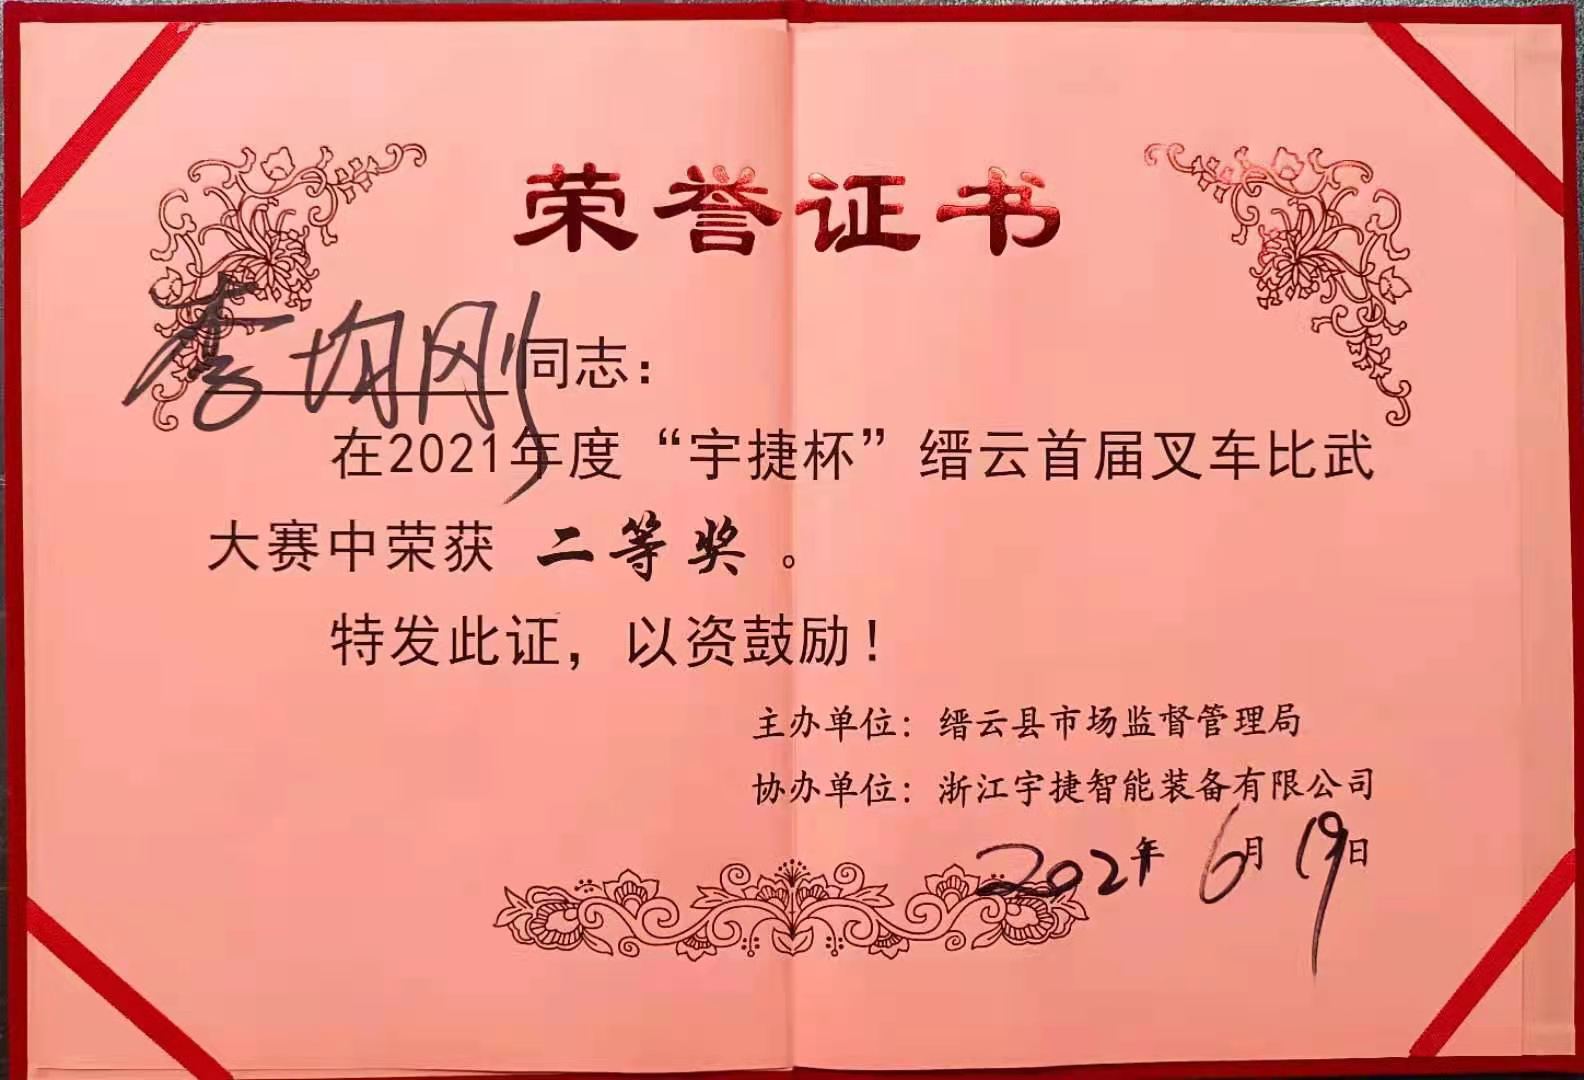 荣誉证书
李均刚同志：
在2021年度“宇捷杯”缙云首届叉车比武
大赛中荣获 二等奖 。
特发此证，以资鼓励！
主办单位：缙云县市场监督管理局
协办单位：浙江宇捷智能装备有限公司
2021年 6月 19日